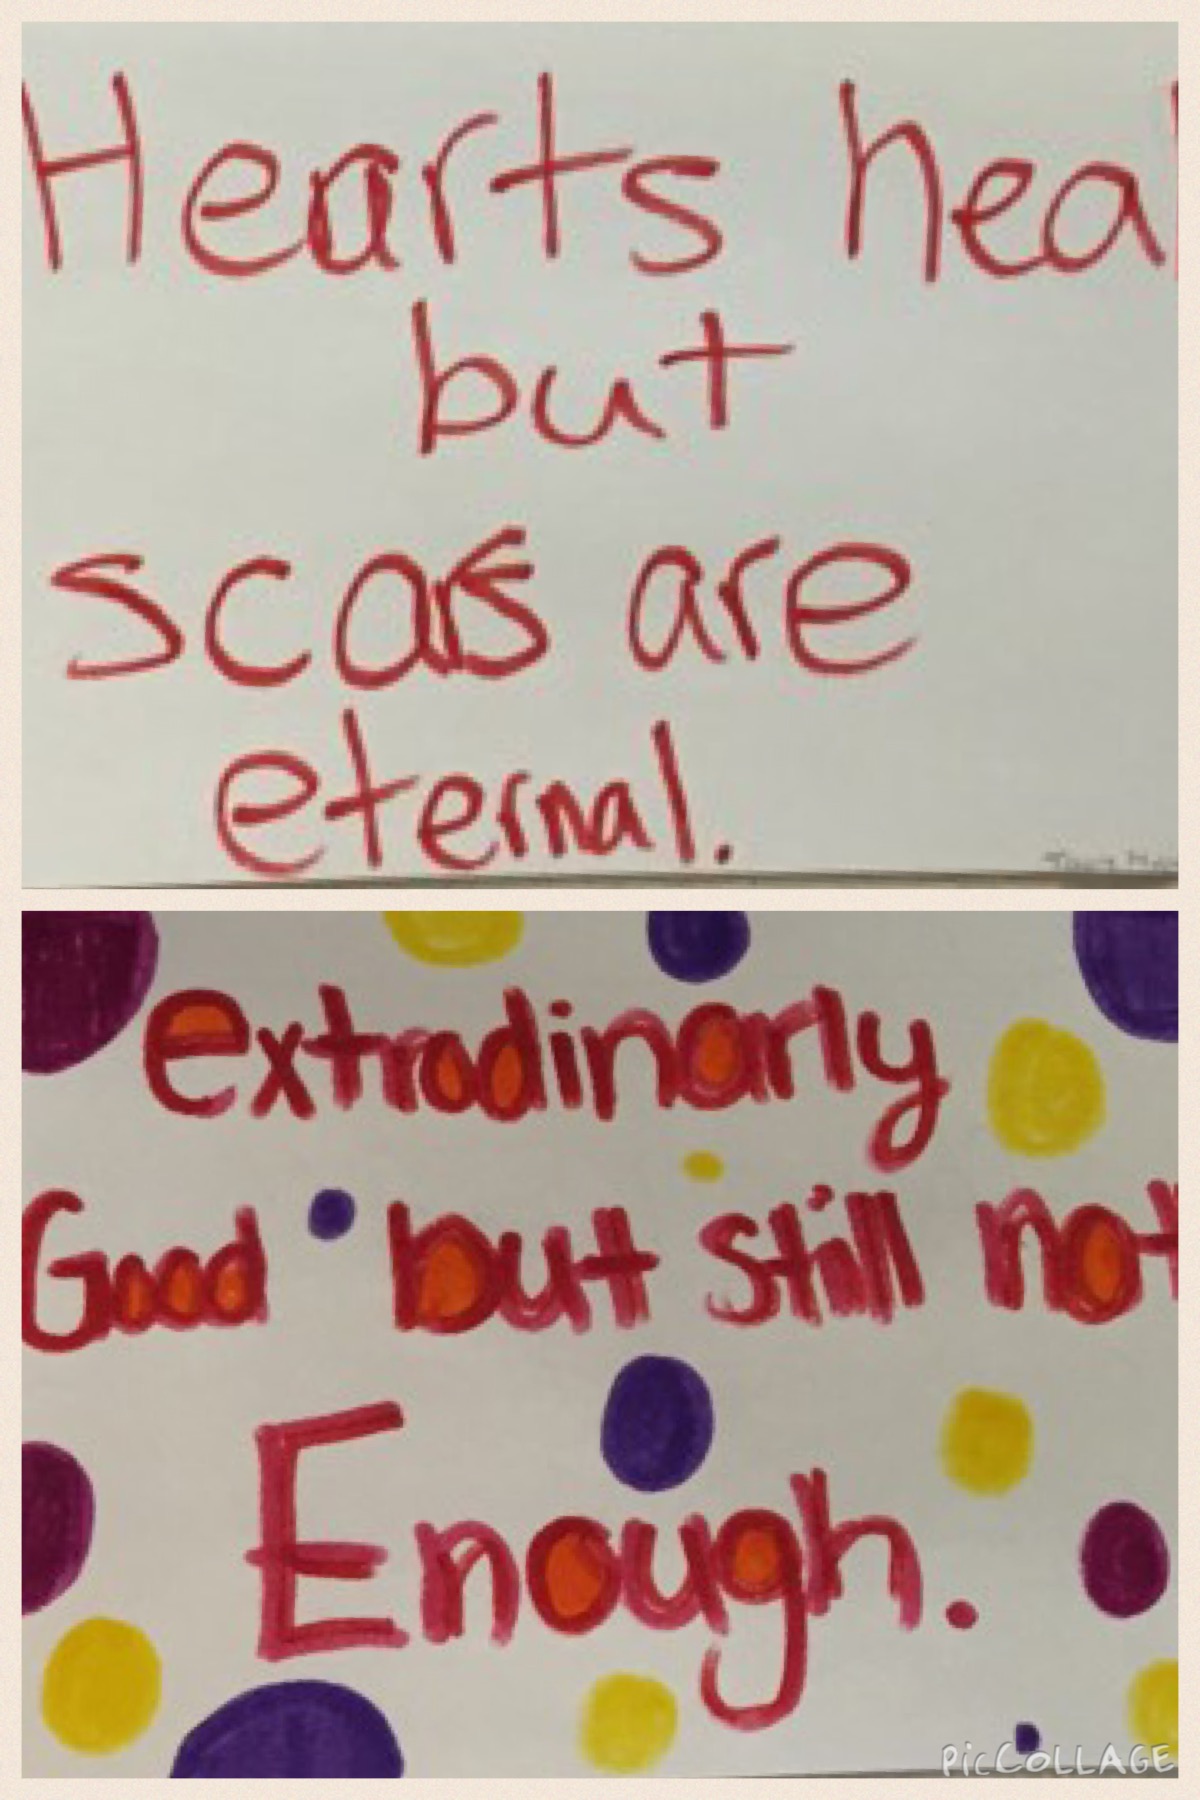 Hearts heal
but
scars are
eternal.
extradinarly
Good but still not
Enough.
PicCOLLAGE